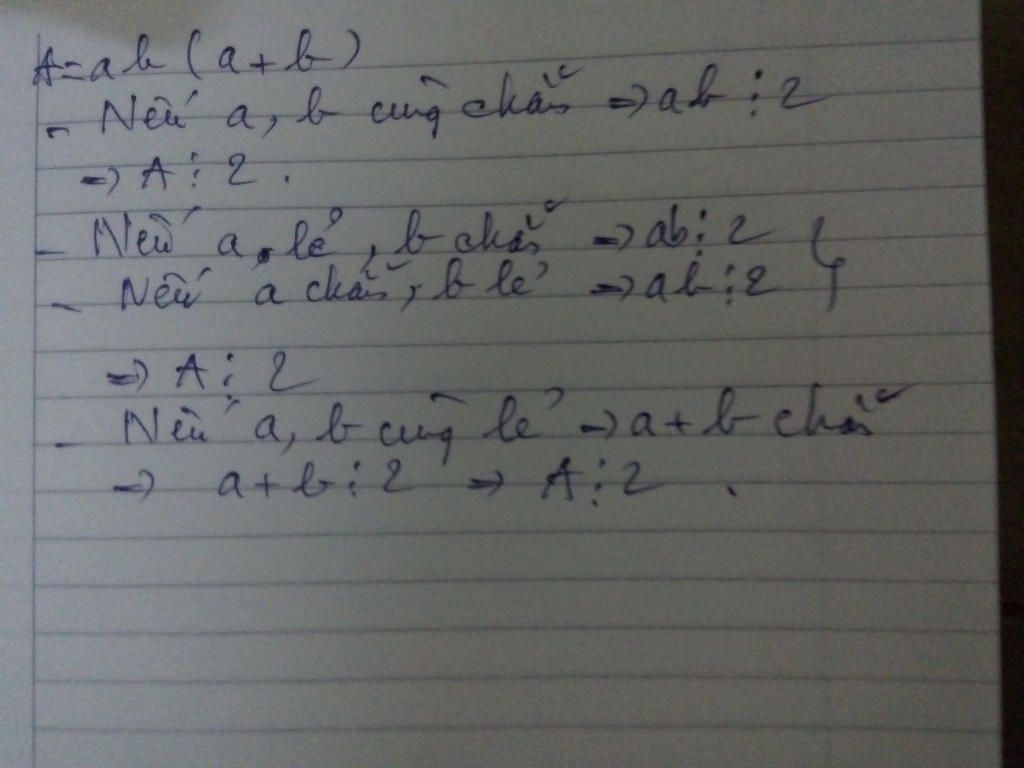 A = ab (a + b)
- Nếu a, b cùng chẵn => ab ⋮ 2
=> A ⋮ 2 .
- Nếu a lẻ, b chẵn => ab ⋮ 2 }
- Nếu a chẵn, b lẻ => ab ⋮ 2
=> A ⋮ 2
- Nếu a, b cùng lẻ => a + b chẵn
=> a + b ⋮ 2 => A ⋮ 2 .